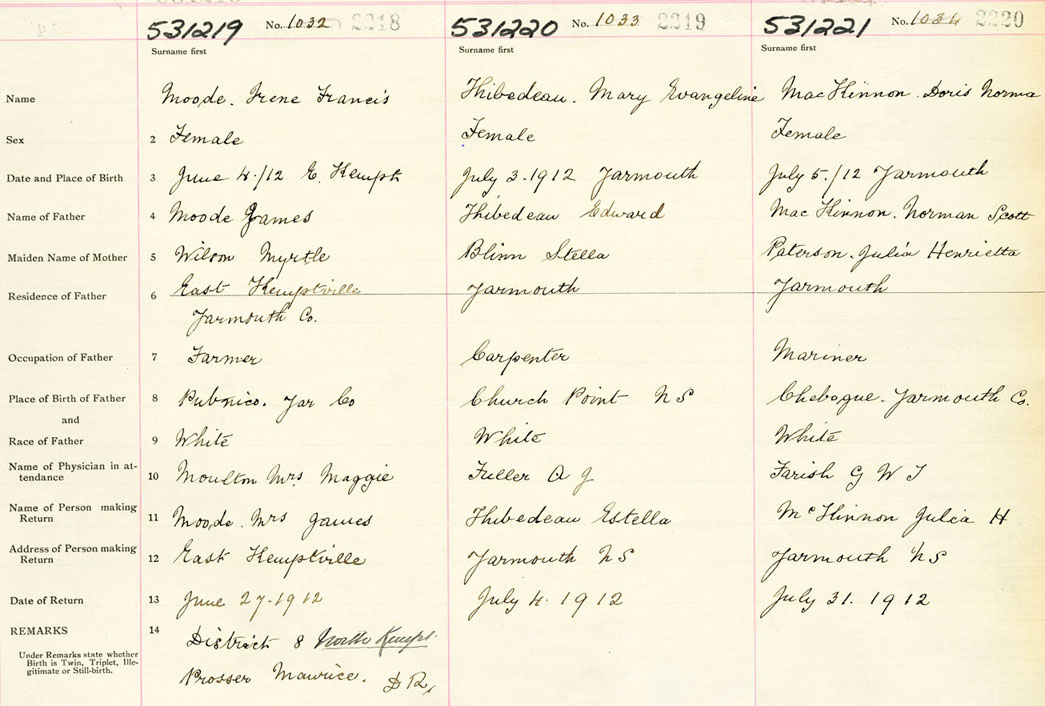 531219 No. 1032 2218 531220 No. 1033 2219 531221 No. 1034 2220
Surname first Surname first Surname first
Name Moode. Irene Francis Thibedeau. Mary Evangeline MacKinnon. Doris Norma
Sex 2 Female Female Female
Date and Place of Birth 3 June 4./12 E. Kempt July 3. 1912 Yarmouth July 5./12 Yarmouth
Name of Father 4 Moode James Thibedeau Edward MacKinnon. Norman Scott
Maiden Name of Mother 5 Wilson Myrtle Blinn Stella Paterson. Julia Henrietta
Residence of Father 6 East Kemptville Yarmouth Yarmouth
Yarmouth Co.
Occupation of Father 7 Farmer Carpenter Mariner
Place of Birth of Father 8 Pubnico. Yar Co Church Point N S Chebogue. Yarmouth Co.
and
Race of Father 9 White White White
Name of Physician in at-
tendance 10 Moulton Mrs Maggie Fuller A J Farish G W T
Name of Person making
Return 11 Moode. Mrs James Thibedeau Estella McKinnon Julia H
Address of Person making
Return 12 East Kemptville Yarmouth N S Yarmouth N S
Date of Return 13 June 27. 1912 July 4. 1912 July 31. 1912
REMARKS 14 District 8 North Kempt.
Under Remarks state whether
Birth is Twin, Triplet, Ille-
gitimate or Still-birth.
Prosser Maurice. D R,